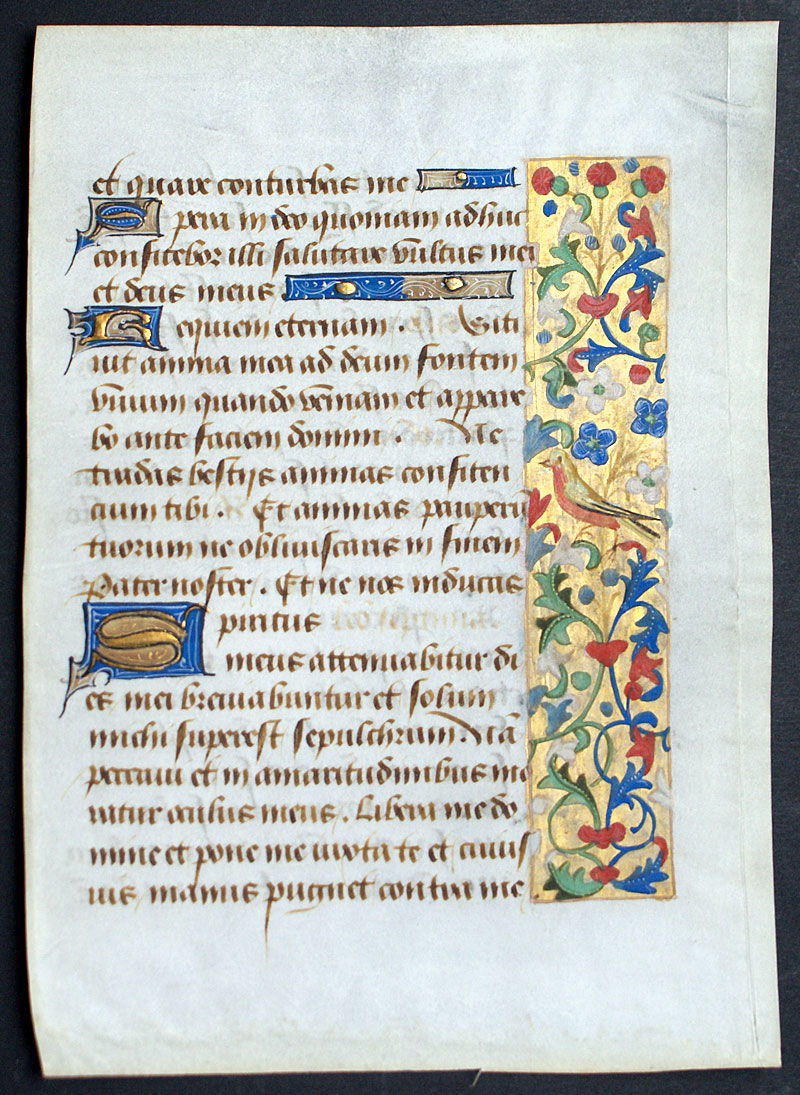 et quare conturbas me
Spera in deo quoniam adhuc
confitebor illi salutare vultus mei
et deus meus
Requiem eternam. Siti
uit anima mea ad deum fontem
viuum quando veniam et appare
bo ante faciem domini. Ne
tradas bestijs animas confiten
cium tibi. Et animas pauperū
tuorum ne obliuiscaris in finem
Pater noster. Et ne nos inducas
Spiritus
meus attenuabitur di
es mei breuiabuntur et solum
michi superest sepulchrum. Nō
peccaui et in amaritudinibus mo
ratur oculus meus. Libera me do
mine et pone me iuxta te et cuius
uis manus pugnet contra me